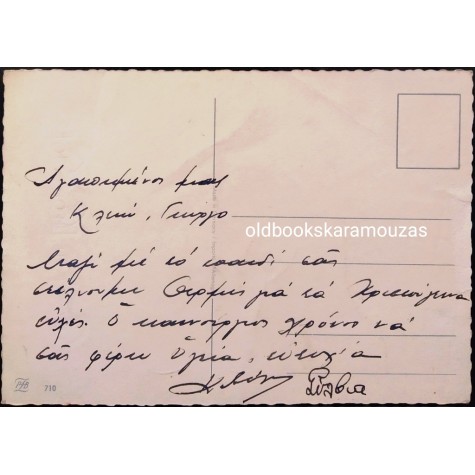 Ἀγαπημένοι μας
Κλειώ, Γιώργο
oldbookskaramouzas
Μαζί μέ τό παιδί σᾶς
στέλνουμε θερμές γιά τά Χριστούγεννα
εὐχές. Ὁ καινούργιος χρόνος νά
σᾶς φέρει ὑγεία, εὐτυχία
Σύλβια
PFB 710